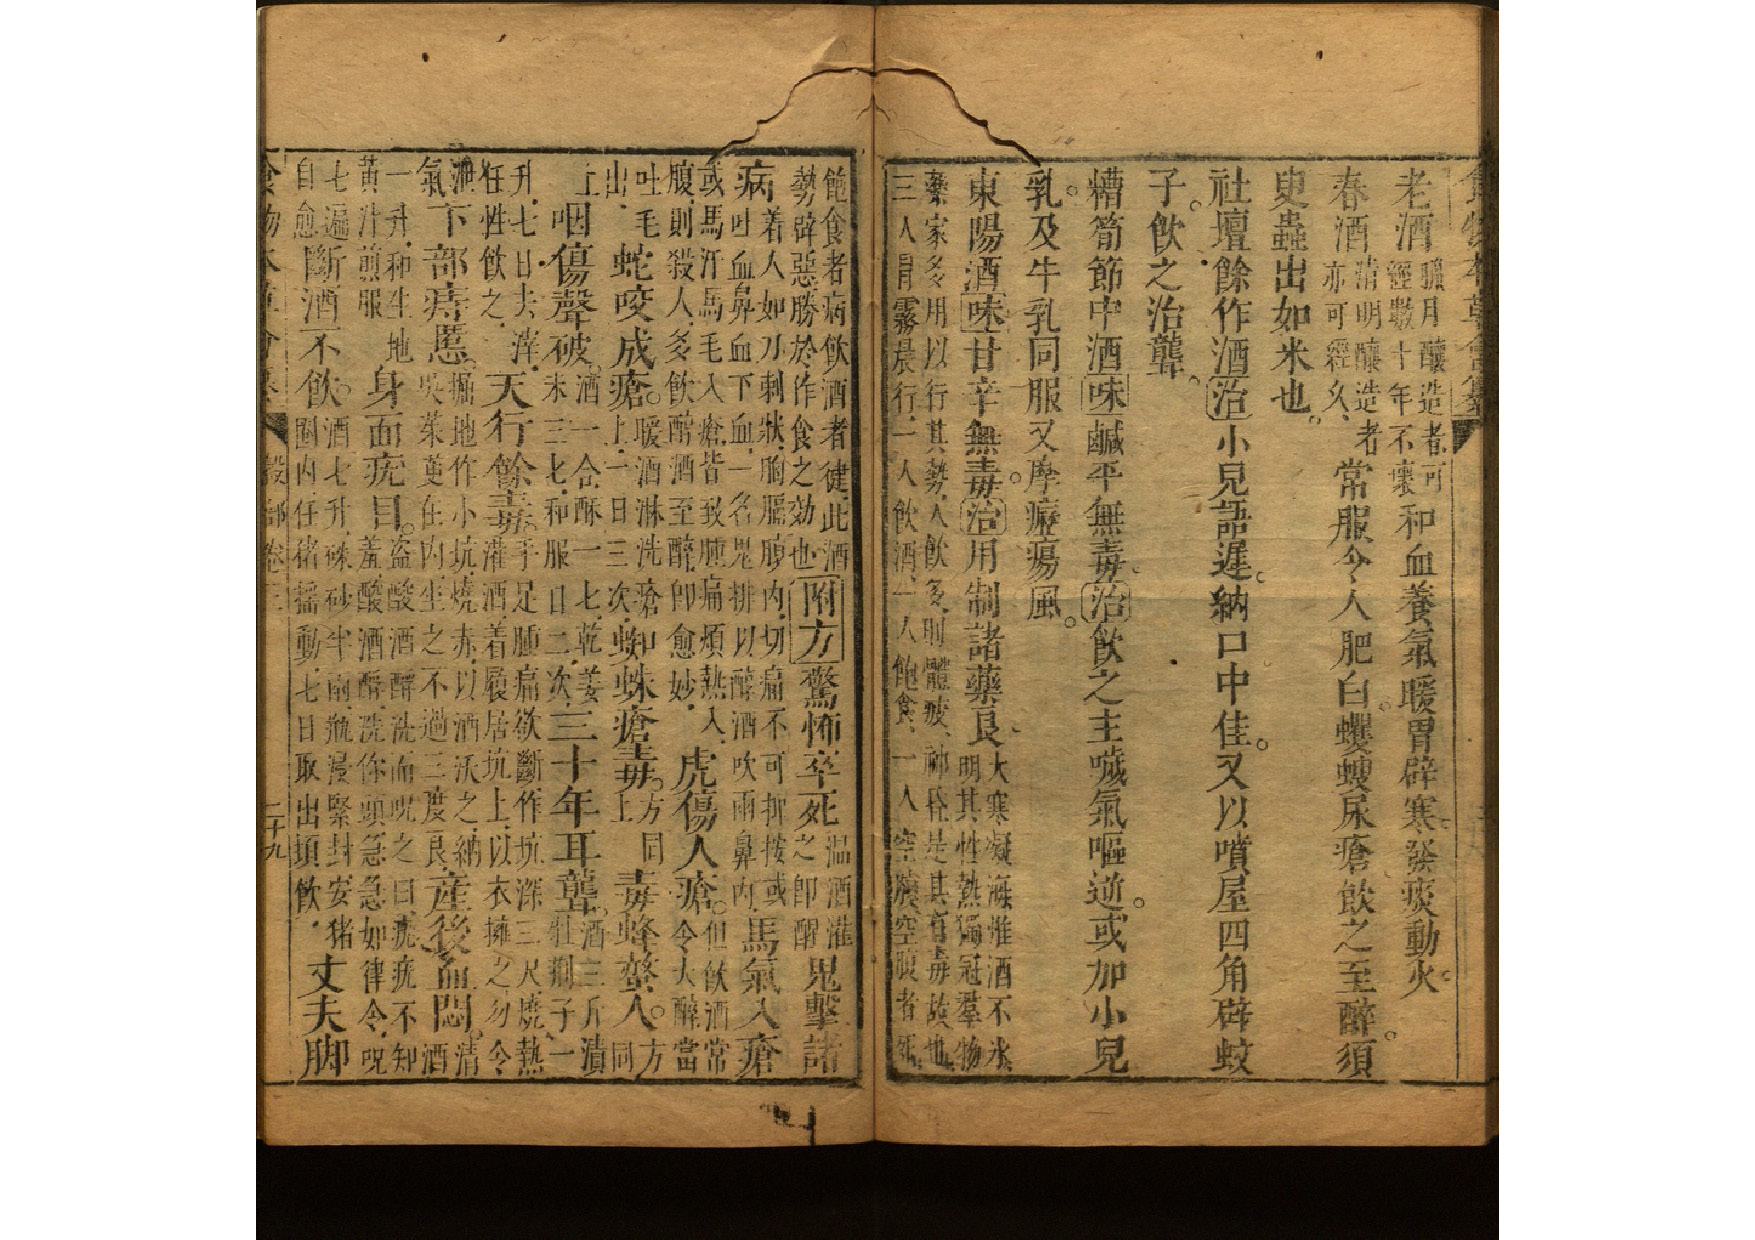 老酒臘月釀造者可經數十年不壞和血養氣暖胃辟寒發痰動火
春酒清明釀造者亦可經久常服令人肥白蠼螋尿瘡飲之至醉須
臾蟲出如米也
社壇餘作酒治小兒語遲納口中佳又以噴屋四角辟蚊
子飲之治聾
糟筍節中酒味鹹平無毒治飲之主噦氣嘔逆或加小兒
乳及牛乳同服又摩癧瘍風
東陽酒味甘辛無毒治用制諸藥良大寒凝海惟酒不氷明其性熱獨冠羣物
藥家多用以行其勢人飲多則體疲神昏是其有毒故也
三人冒霧晨行一人飲酒一人飽食一人空腹空腹者死
飽食者病飲酒者健此酒
勢辟惡勝於作食之効也附方驚怖卒死温酒灌之卽醒鬼擊諸
病着人如刀刺狀胸脇腹內切痛不可抑按或吐血鼻血下血一名鬼排以醇酒吹兩鼻內馬氣入瘡
或馬汗馬毛入瘡皆致腫痛煩熱入腹則殺人多飲醇酒至醉卽愈妙虎傷人瘡但飲酒常令大醉當
吐毛出蛇咬成瘡暖酒淋洗瘡上一日三次蜘蛛瘡毒方同上毒蜂螫人方同
上咽傷聲破酒一合酥一七乾姜末三七和服日二次三十年耳聾酒三斤漬牡荆子一
升七日去滓任性飲之天行餘毒手足腫痛欲斷作坑深三尺燒熱灌酒着屐居坑上以衣擁之勿令
泄氣下部痔䘌掘地作小坑燒赤以酒沃之納吳茱萸在內坐之不過三度良產後血悶清酒
一升和生地黄汁煎服身面疣目盗酸酒酵洗而呪之曰疣疣不知羞酸酒酵洗你頭急急如律令呪
七遍自愈斷酒不飲酒七升硃砂半兩瓶浸緊封安猪圈內任猪搖動七日取出頓飲丈夫脚
食物本草會纂 穀部卷三 二十九